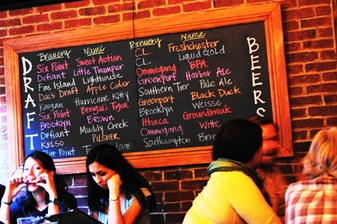 DRAFT
BEERS
Brewery Name
Six Point Sweet Action
Defiant Little Thumper
Fire Island Lighthouse
Doc's Draft Apple Cider
Keegan Hurricane Kitty
Six Point Bengali Tiger
Brooklyn BROWN
Defiant Muddy Creek
Kelso PILSNER
Blue Point
Brewery Name
C.L. Freshchester
C.L. Liquid Gold
Ommegang BPA
Greenport Harbor Ale
Southern Tier Pale Ale
Greenport Black Duck
Brooklyn Weisse
Ithaca Groundbreak
Ommegang Witte
Southampton